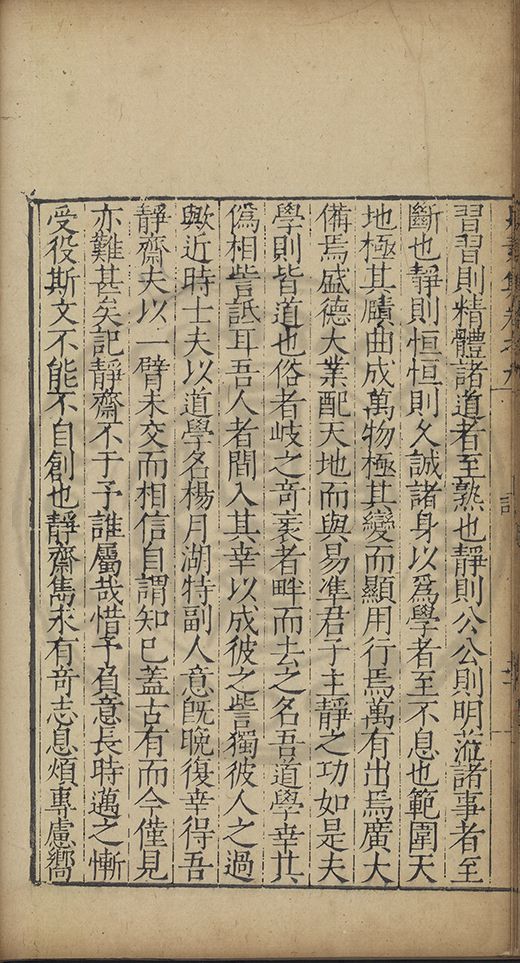 習習則精體諸道者至熟也靜則公公則明蒞諸事者至
斷也靜則恒恒則久誠諸身以爲學者至不息也範圍天
地極其賾曲成萬物極其變而顯用行焉萬有出焉廣大
備焉盛德大業配天地而與易準君子主靜之功如是夫
學則皆道也俗者岐之奇衺者畔而去之名吾道學幸其
僞相訾詆耳吾人者間入其幸以成彼之訾獨彼人之過
歟近時士夫以道學名楊月湖特副人意旣晚復幸得吾
靜齋夫以一臂未交而相信自謂知已蓋古有而今僅見
亦難甚矣記靜齋不于予誰屬哉惜予負意長時邁之慚
受役斯文不能不自創也靜齋雋永有奇志息煩專慮嚮